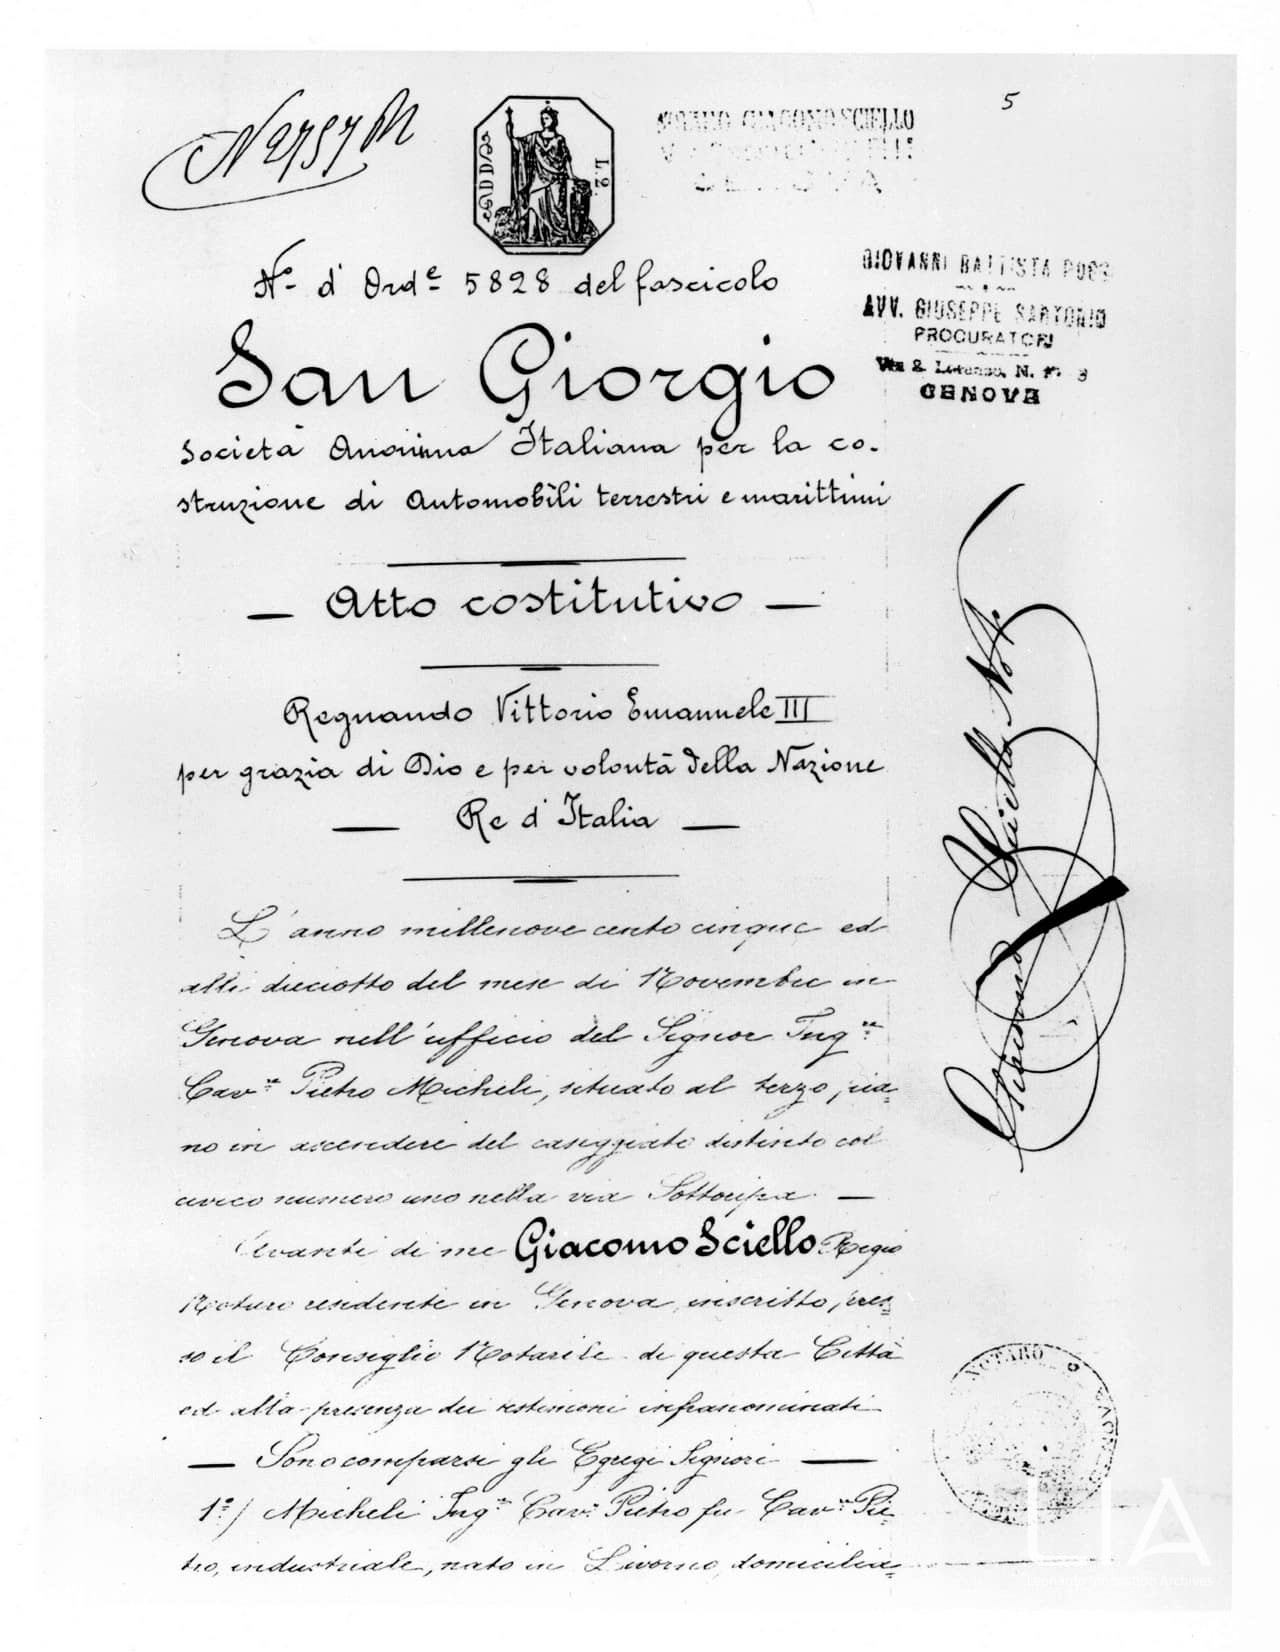 5
L. 2.
NOTARO GIACOMO SCIELLO
GENOVA
GIOVANNI BATTISTA
AVV. GIUSEPPE SARTORIO
PROCURATORI
Via S. Lorenzo, N.
GENOVA
N.º d' Ord.e 5828 del fascicolo
San Giorgio
Società Anonima Italiana per la co-
struzione di Automobili terrestri e marittimi
— Atto costitutivo —
Regnando Vittorio Emanuele III
per grazia di Dio e per volontà della Nazione
— Re d'Italia —
L'anno millenove cento cinque ed
alli dieciotto del mese di Novembre in
Genova nell'ufficio del Signor Ing.re
Cav.re Pietro Micheli, situato al terzo pia=
no in ascendere del caseggiato distinto col
civico numero uno nella via Sottoripa. —
Avanti di me Giacomo Sciello Regio
Notaro residente in Genova, inscritto pres=
so il Consiglio Notarile di questa Città
ed alla presenza dei testimoni infranominati
— Sono comparsi gli Egregi Signori —
1º/ Micheli Ing.re Cav.re Pietro fu Cav.re Pie=
tro, industriale, nato in Livorno, domicilia=
Giacomo Sciello Not.
NOTARO